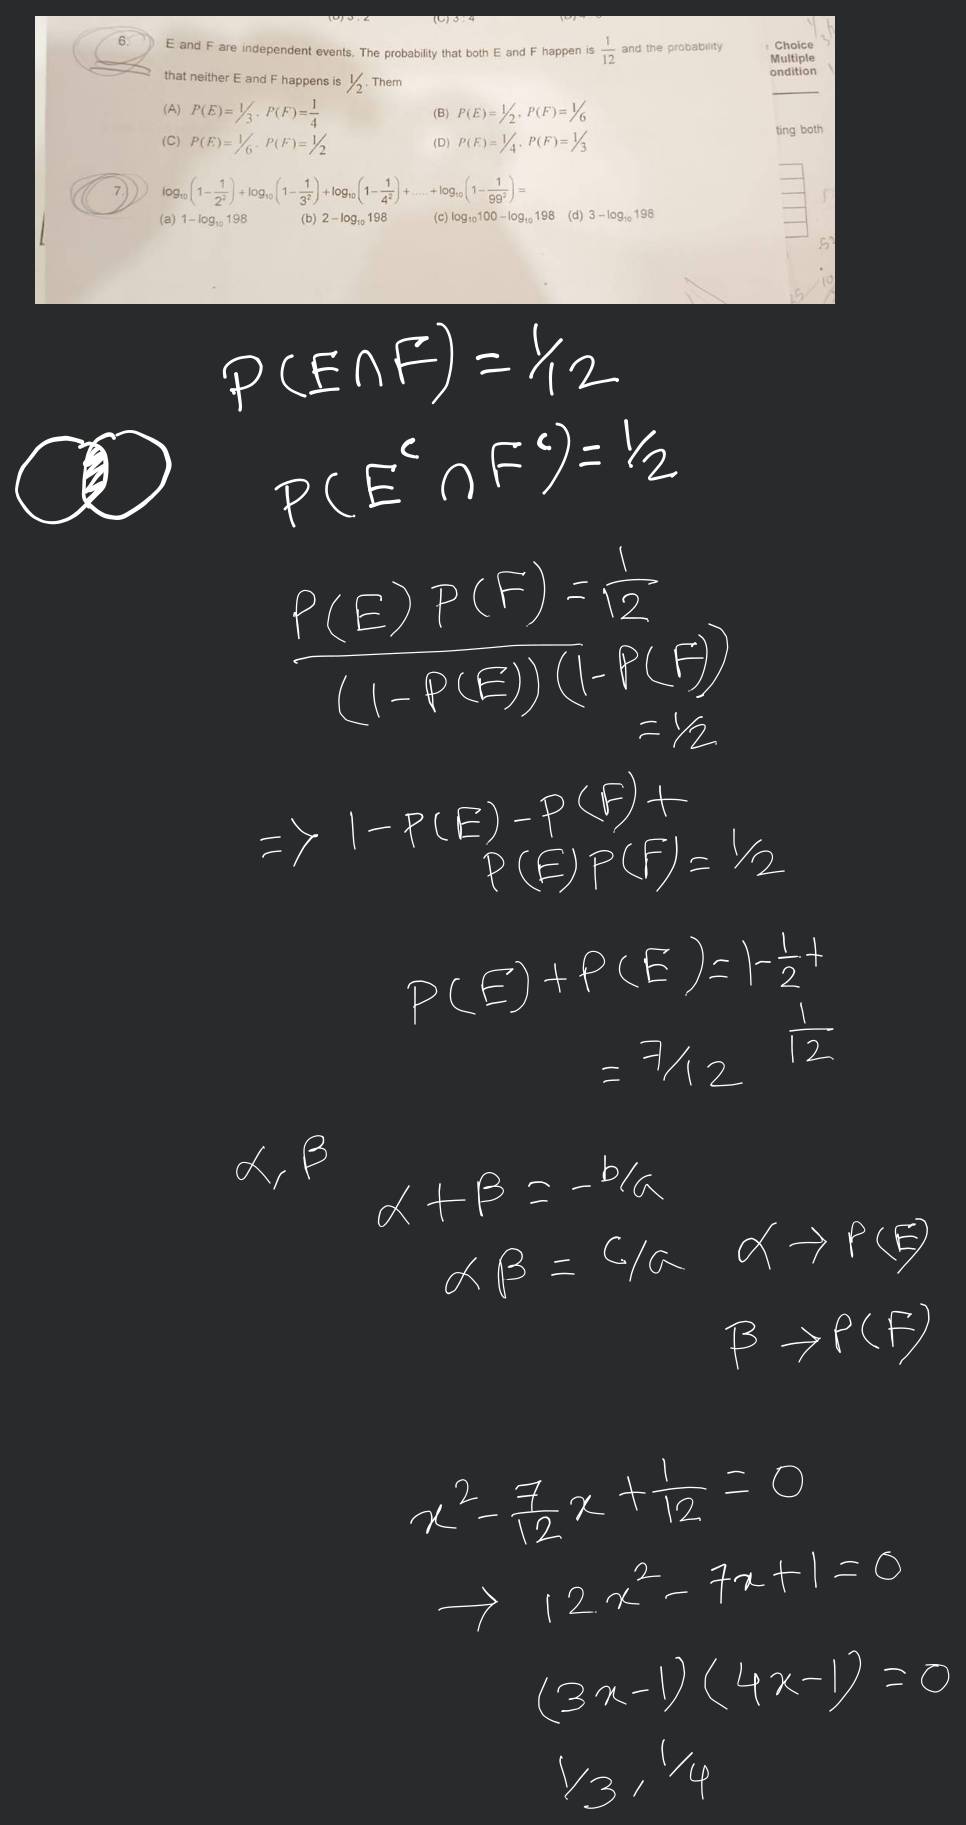 6. E and F are independent events. The probability that both E and F happen is 1/12 and the probability
that neither E and F happens is 1/2. Them
(A) P(E)=1/3, P(F)=1/4 (B) P(E)=1/2, P(F)=1/6
(C) P(E)=1/6, P(F)=1/2 (D) P(E)=1/4, P(F)=1/3
Choice
Multiple
ondition
ting both
7. log₁₀(1-1/2²)+log₁₀(1-1/3²)+log₁₀(1-1/4²)+.....+log₁₀(1-1/99²)=
(a) 1-log₁₀198 (b) 2-log₁₀198 (c) log₁₀100-log₁₀198 (d) 3-log₁₀198
P(E∩F)=1/12
P(Eᶜ∩Fᶜ)=1/2
P(E)P(F)=1/12
(1-P(E))(1-P(F))
=1/2
=> 1-P(E)-P(F)+
P(E)P(F)=1/2
P(E)+P(E)=1-1/2+
1/12
=7/12
α,β
α+β=-b/a
αβ=c/a α→P(E)
β→P(F)
x²-7/12x+1/12=0
→ 12x²-7x+1=0
(3x-1)(4x-1)=0
1/3,1/4